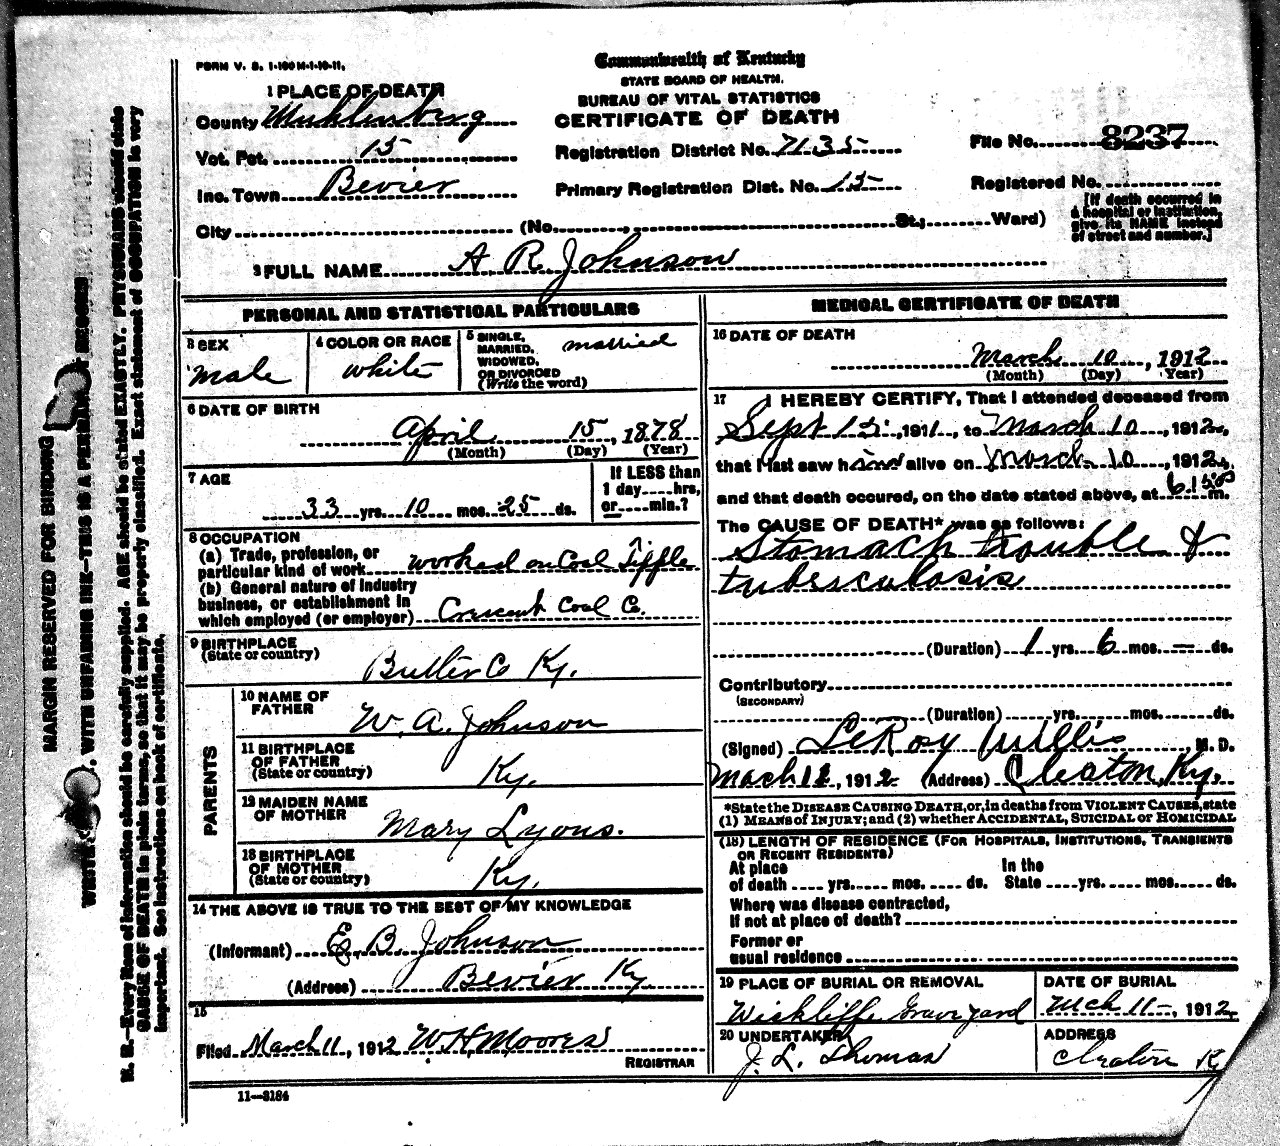 FORM V. S. 1-100 M-1-10-11.
Commonwealth of Kentucky
STATE BOARD OF HEALTH.
BUREAU OF VITAL STATISTICS
CERTIFICATE OF DEATH
1 PLACE OF DEATH
County Muhlenberg
Vot. Pct. 15
Inc. Town Bevier
City (No. , St.; Ward)
Registration District No. 7135
Primary Registration Dist. No. 15
File No. 8237
Registered No.
[If death occurred in
a hospital or institution,
give its NAME instead
of street and number.]
2 FULL NAME A R Johnson
PERSONAL AND STATISTICAL PARTICULARS
3 SEX
male
4 COLOR OR RACE
white
5 SINGLE,
MARRIED,
WIDOWED,
OR DIVORCED
(Write the word)
married
6 DATE OF BIRTH
April 15, 1878
(Month) (Day) (Year)
7 AGE
33 yrs. 10 mos. 25 ds.
If LESS than
1 day....hrs,
or....min.?
8 OCCUPATION
(a) Trade, profession, or
particular kind of work worked on Coal Tipple
(b) General nature of industry
business, or establishment in
which employed (or employer) Crescent Coal Co.
9 BIRTHPLACE
(State or country)
Butler Co Ky.
PARENTS
10 NAME OF
FATHER
W. A. Johnson
11 BIRTHPLACE
OF FATHER
(State or country)
Ky.
12 MAIDEN NAME
OF MOTHER
Mary Lyons.
13 BIRTHPLACE
OF MOTHER
(State or country)
Ky.
14 THE ABOVE IS TRUE TO THE BEST OF MY KNOWLEDGE
(Informant) E. B. Johnson
(Address) Bevier Ky.
15
Filed March 11, 1912 W H Moores
REGISTRAR
11—3184
MEDICAL CERTIFICATE OF DEATH
16 DATE OF DEATH
March 10, 1912
(Month) (Day) (Year)
17 I HEREBY CERTIFY, That I attended deceased from
Sept 15, 1911, to March 10, 1912,
that I last saw him alive on March 10, 1912,
and that death occured, on the date stated above, at 6.15 m.
The CAUSE OF DEATH* was as follows:
Stomach trouble &
tuberculosis
(Duration) 1 yrs. 6 mos. — ds.
Contributory
(SECONDARY)
(Duration) yrs. mos. ds.
(Signed) LeRoy Willis M. D.
Mach 12, 1912 (Address) Cleaton, Ky.
*State the DISEASE CAUSING DEATH, or, in deaths from VIOLENT CAUSES, state
(1) MEANS of INJURY; and (2) whether ACCIDENTAL, SUICIDAL or HOMICIDAL
(18) LENGTH OF RESIDENCE (FOR HOSPITALS, INSTITUTIONS, TRANSIENTS
OR RECENT RESIDENTS)
At place
of death .... yrs. .... mos. .... ds.
In the
State .... yrs. .... mos. .... ds.
Where was disease contracted,
If not at place of death?
Former or
usual residence
19 PLACE OF BURIAL OR REMOVAL
Wickliffe Graveyard
DATE OF BURIAL
Mch 11—, 1912
20 UNDERTAKER
J. L. Thomas
ADDRESS
Cleaton K
MARGIN RESERVED FOR BINDING
WITH UNFADING INK—THIS IS A PERMANENT RECORD
N. B.—Every item of information should be carefully supplied. AGE should be stated EXACTLY. PHYSICIANS should state
CAUSE OF DEATH in plain terms, so that it may be properly classified. Exact statement of OCCUPATION is very
important. See instructions on back of certificate.